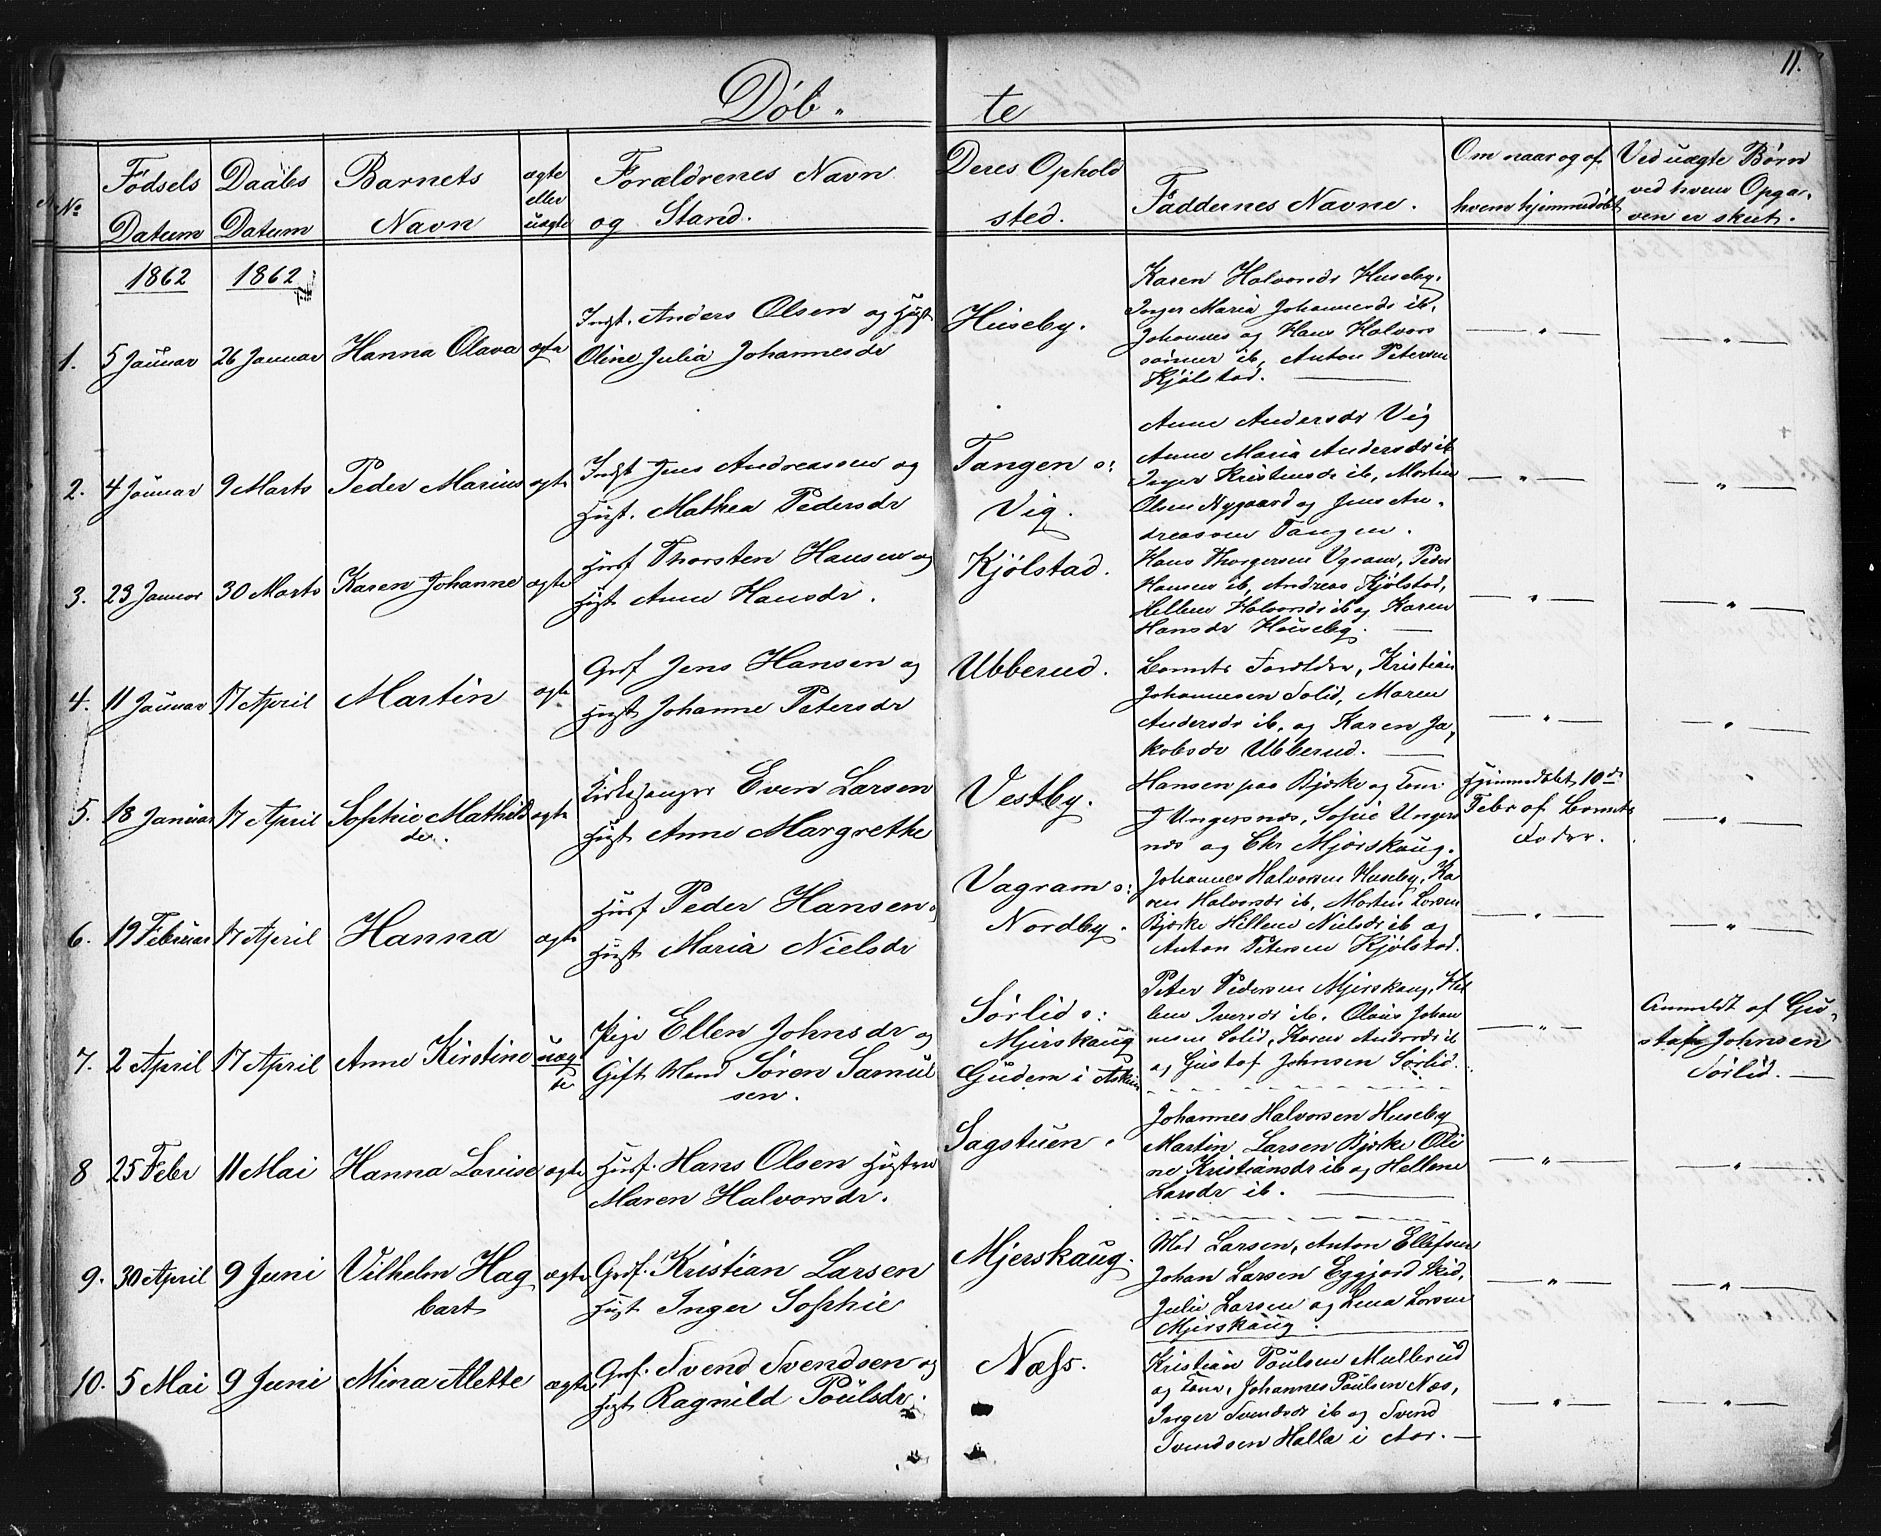 11.
Döb-te
№
Födsels Datum
Daabs Datum
Barnets Navn
ægte eller uægte
Forældrenes Navn og Stand.
Deres Ophold sted.
Faddernes Navne.
Om naar og af hvem hjemmedöbt
Ved uægte Börn ved hvem Opga- ven er skeet.
1862 1862
1. 5 Januar 26 Januar Hanna Olava ægte
Indst. Anders Olsen og Hust
Oline Julia Johannesdr
Huseby.
Karen Halvorsdr Huseby.
Inger Maria Johannesdr ib.
Johannes og Hans Halvors
sönner ib, Anton Petersen
Kjölstad.
2. 4 Januar 9 Marts Peder Marius ægte
Indst Jens Andreassen og
Hust. Mathea Pedersdr
Tangen o:
Vig.
Anne Andersdr Vig
Anne Maria Andersdr ib
Inger Kristensdr ib, Morten
Olsen Nygaard og Jens An-
dreassen Tangen.
3. 23 Januar 30 Marts Karen Johanne ægte
Husf Thorsten Hansen og
Hust Anne Hansdr.
Kjölstad.
Hans Thorgersen Vgram, Peder
Hansen ib, Andreas Kjölstad,
Hellene Halvorsdr ib og Karen
Hansdr Huseby.
4. 11 Januar 17 April Martin ægte
Grdf Jens Hansen og
Hust Johanne Petersdr
Ubberud.
Barnets Forældre, Kristian
Johannesen Solid, Maren
Andersdr ib, og Karen Ja,
kobsdr Ubberud.
5. 18 Januar 17 April Sophie Mathild
de. ægte
Kirkesanger Even Larsen
Hust Anne Margrethe
Vestby.
Hansen paa Bjærke og Kone
J Ungersnæs, Sofie Ungers
næs og Chr Mjörskaug.
Hjemmedöbt 10de
Febr af Barnets
Fader.
6. 19 Februar 17 April Hanna ægte
Husf Peder Hansen og
Hust Maria Nielsdr
Vagram o:
Nordby.
Johannes Halvorsen Huseby, Ka
ren Halvorsdr ib, Martin Larsen
Bjærke Hellene Nielsdr ib og
Anton Petersen Kjölstad.
7. 2 April 17 April Anne Kirstine uæg
te
Pige Ellen Johnsdr og
Gift Mand Sören Samuel
sen.
Sörlid o:
Mjerskaug
Gudem i Askim
Peter Pedersen Mjerskaug, Hel
lene Iversdr ib. Olaus Johan
nesen Solid, Karen Andersdr ib
og Gustaf Johnsen Sörlid.
Anmeldt af Gu-
staf Johnsen
Sörlid.
8 25 Febr 11 Mai Hanna Lovise ægte
Husf. Hans Olsen Hustru
Maren Halvorsdr.
Sagstuen.
Johannes Halvorsen Huseby
Martin Larsen Bjærke Oli
ne Kristiansdr ib og Hellene
Larsdr ib.
9. 30 April 9 Juni Vilhelm Hag
bart ægte
Grdf. Kristian Larsen
Hust Inger Sophie
Mjerskaug.
Larsen, Anton Ellefsen
Johan Larsen Eggjord Skid,
Julie Larsen og Lena Larsen
Mjerskaug.
10. 5 Mai 9 Juni Mina Alette ægte
Grdf. Svend Svendsen og
Hust Ragnild Poulsdr.
Næss.
Kristian Poulsen Mullerud
og Kone, Johannes Poulsen Næs,
Inger Svendsdr ib og Svend
Svendsen Halla i Aas.